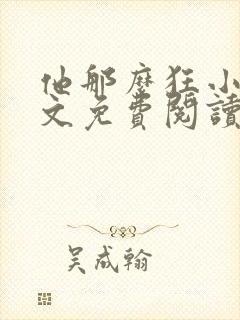 他那麼狂小
文免費閱讀
吴成翰